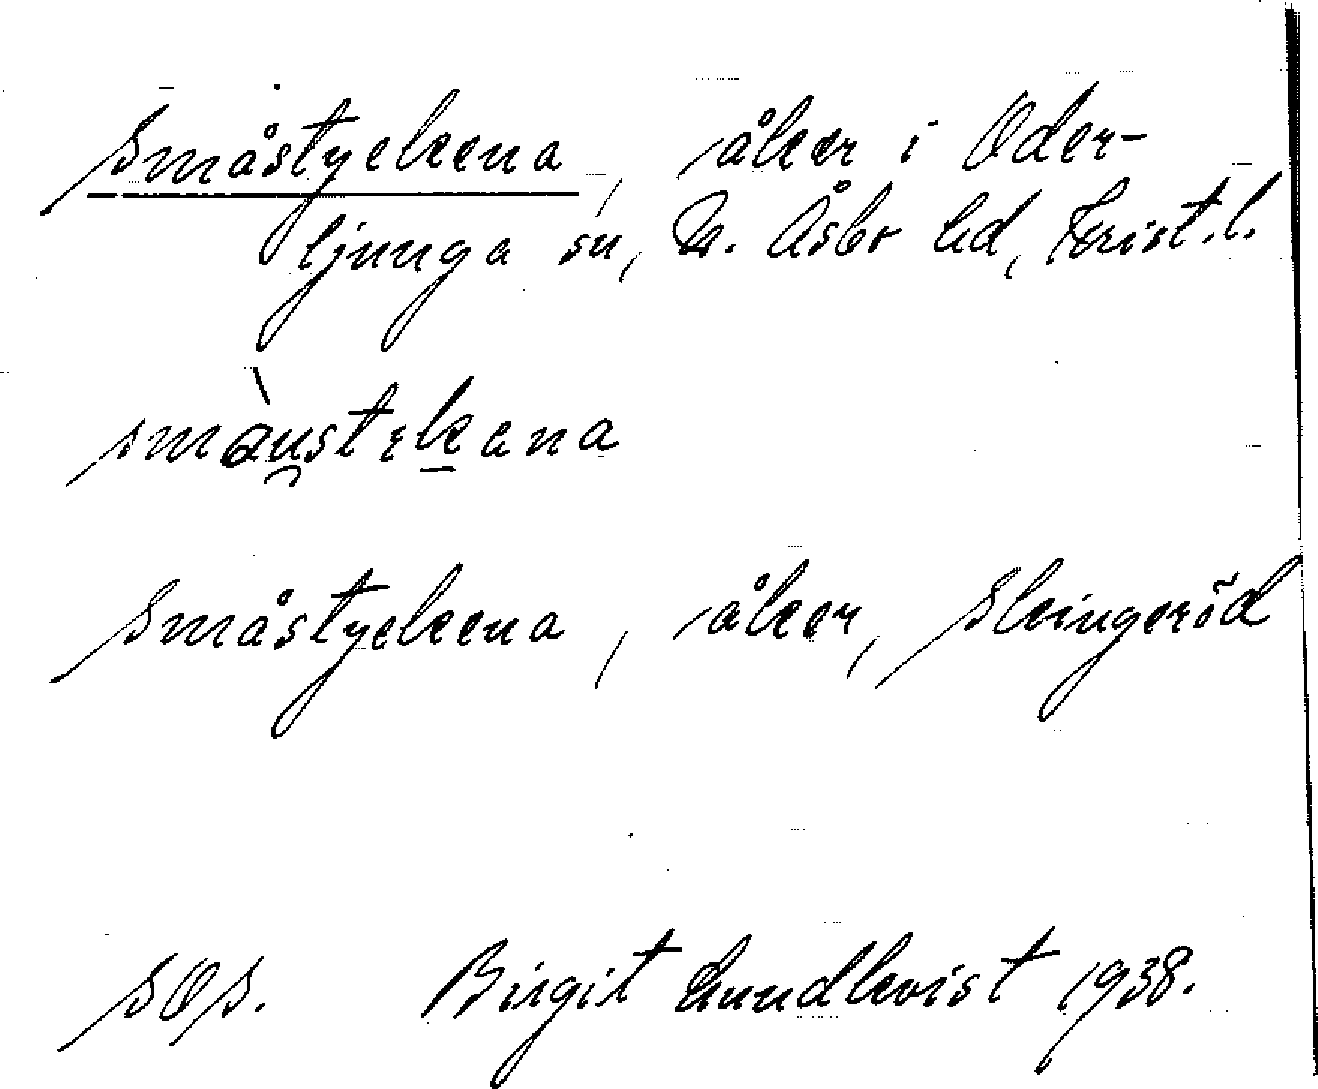 Småstyckena, åker i Oder-
ljunga sn, N. Åsbo hd, Krist.l.
småstyckena, åker, Slingeröd
SOS. Birgit Lundkvist 1938.